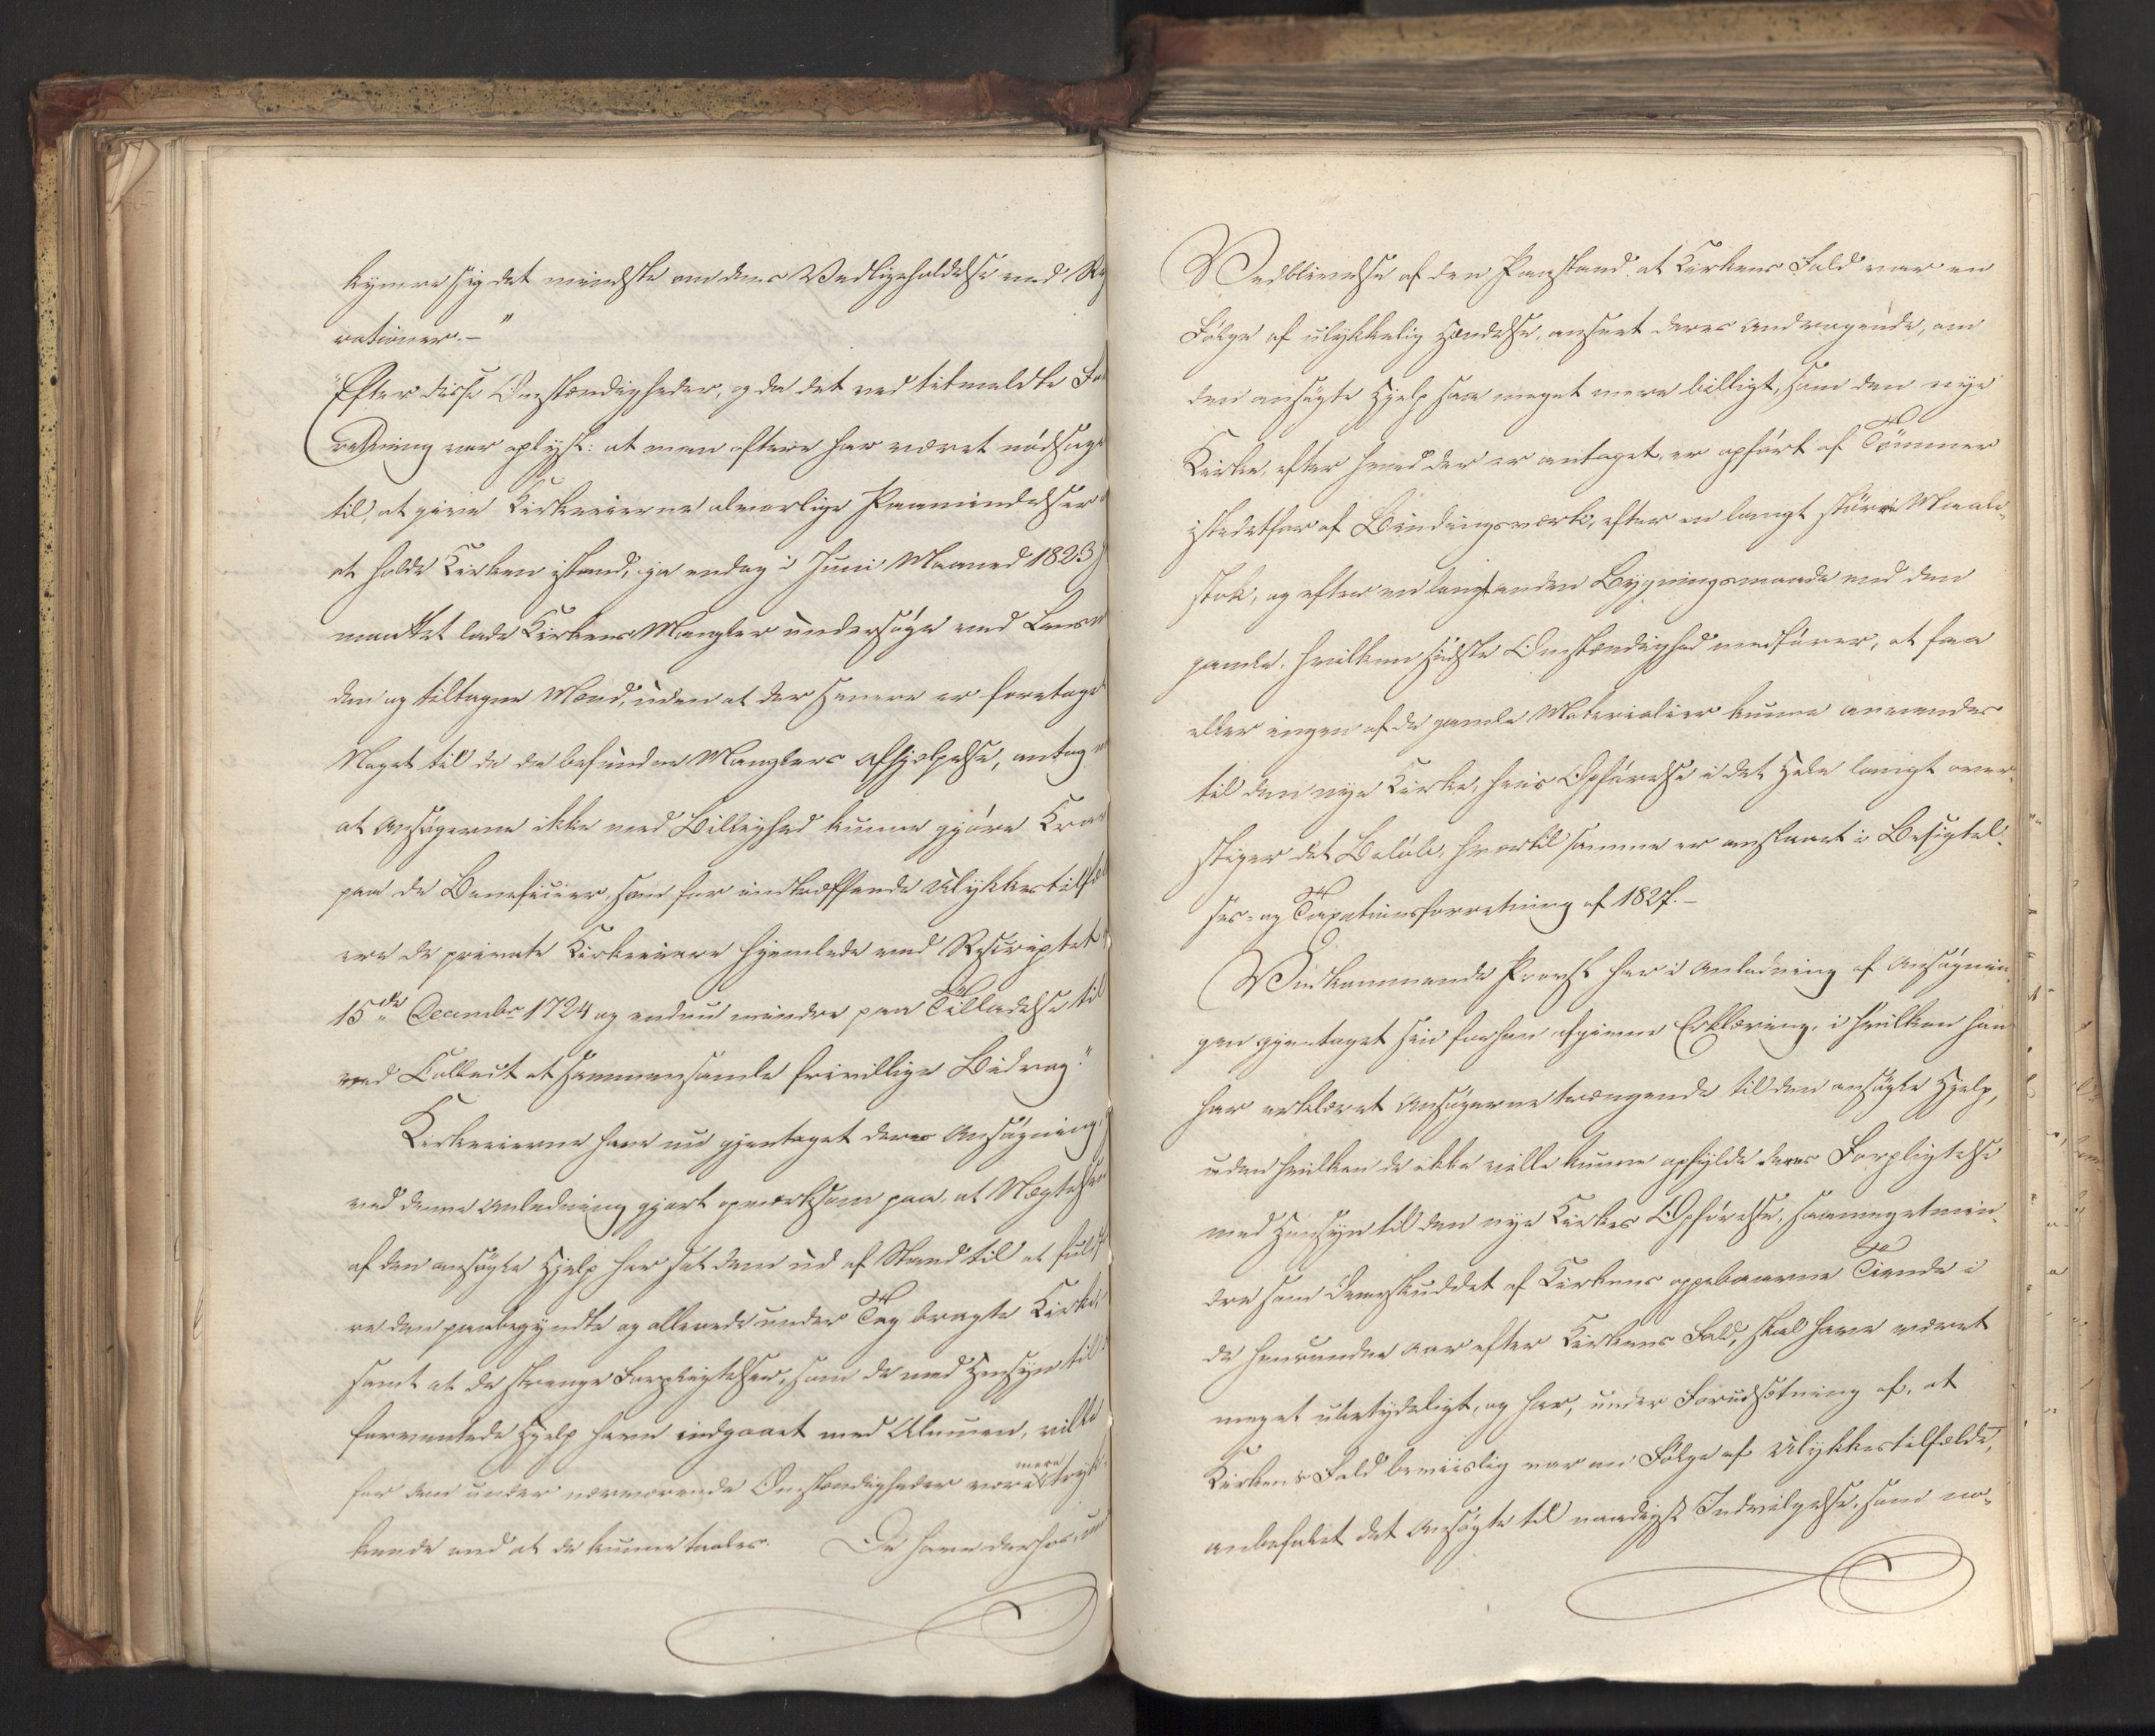 kymre sig det mindste om dens Vedligeholdelse ved Re
rationer.—"
"Efter disse Omstændigheder, og da det ved tilmeldte For
retning var oplyst: at man oftere har været nødsage
til, at give Kirkeeierne alvorlige Paamindelser
at holde Kirken istand, ja endog i Juni Maaned 1823
maattet lade Kirkens Mangler undersøge ved Lens
den og tiltagne Mænd, uden at der senere er foretaget
Noget til de da befundne Manglers Afhjelpelse, antog
at Ansøgerne ikke med Billighed kunne gjøre Krav
paa de Beneficier, som for indtræffende Ulykkestilfæl
ere de private Kirkeeiere hjemlede ved Rescriptet
15de Decembr 1724 og endnu mindre paa Tilladelse til
ved Collect at sammensamle frivillige Bidrag."
Kirkeeierne have nu gjentaget deres Ansøgning,
ved denne Anledning gjort opmærksom paa, at Nægtelsen
af den ansøgte Hjelp har sat dem ud af Stand til at fuldf
re den paabegyndte og allerede under Tag bragte Kirke,
samt at de strenge Forpligtelser, som de med Hensyn til
forventede Hjelp have indgaaet med Almuen, ville
for dem under nærværende Omstændigheder være mere tryk-
kende end at de kunne taales. De have derhos, un
Vedblivelse af den Paastand, at Kirkens Fald var en
Følge af ulykkelig Hændelse, anseet deres Andragende, om
den ansøgte Hjelp saa meget mere billigt, som den nye
Kirke, efter hvad der er antaget, er opført af Tømmer
istedetfor af Bindingsværk, efter en langt større Maale-
stok, og efter en langt anden Bygningsmaade end den
gamle, hvilken sidste Omstændighed medfører, at faa
eller ingen af de gamle Materialier kunne anvendes
til den nye Kirke, hvis Opførelse i det Hele langt over-
stiger det Beløb, hvortil samme er anslaaet i Besigtel-
ses- og Taxationsforretning af 1827.—
Vedkommende Provst har i Anledning af Ansøgnin-
gen gjentaget sin forhen afgivne Erklæring, i hvilken han
har erklæret Ansøgerne trængende til den ansøgte Hjelp,
uden hvilken de ikke ville kunne opfylde deres Forpligtelse
med Hensyn til den nye Kirkes Opførelse, saameget min-
dre som Overskuddet af Kirkens oppebaarne Tiende i
de henrundne Aar efter Kirkens Fald, skal have været
meget ubetydeligt, og har, under Forudsætning af, at
Kirkens Fald beviislig var en Følge af Ulykkestilfælde,
anbefalet det Ansøgte til naadigst Indvilgelse, som no-